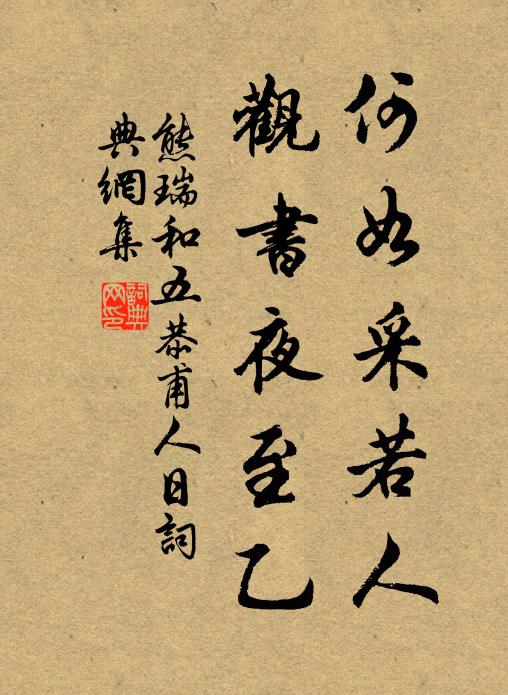 何如采若人
觀書夜至乙
熊瑞和五恭甫人日詞
典網集
詞典
网印